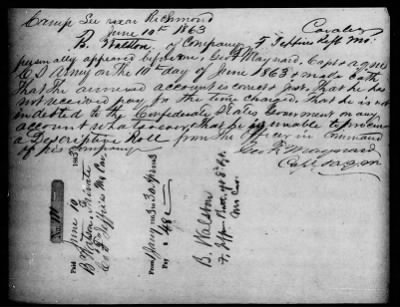 Camp near Richmond
June 10th 1863
B. Watson, of Company F Jeffries Regt Mo. Cavalry
personally appeared before me, Geo R Maynard, Capt & aqm
C S Army on the 10th day of June 1863 & made oath
that the annexed account is correct & just, that he has
not received pay for the time charged, that he is not
indebted to the Confederate States Government on any
account whatsoever, that he is unable to procure
a Descriptive Roll from the Officer in Command
of his Company
Geo R Maynard
Capt & aqm
No.
Paid June 10 1863
B. Watson, Private
Co F Jeffries Mo Cav
From 1 Jany to 30 Apr 1863
Pay $ 48
B. Watson
F, Jeffries
Mo Cav